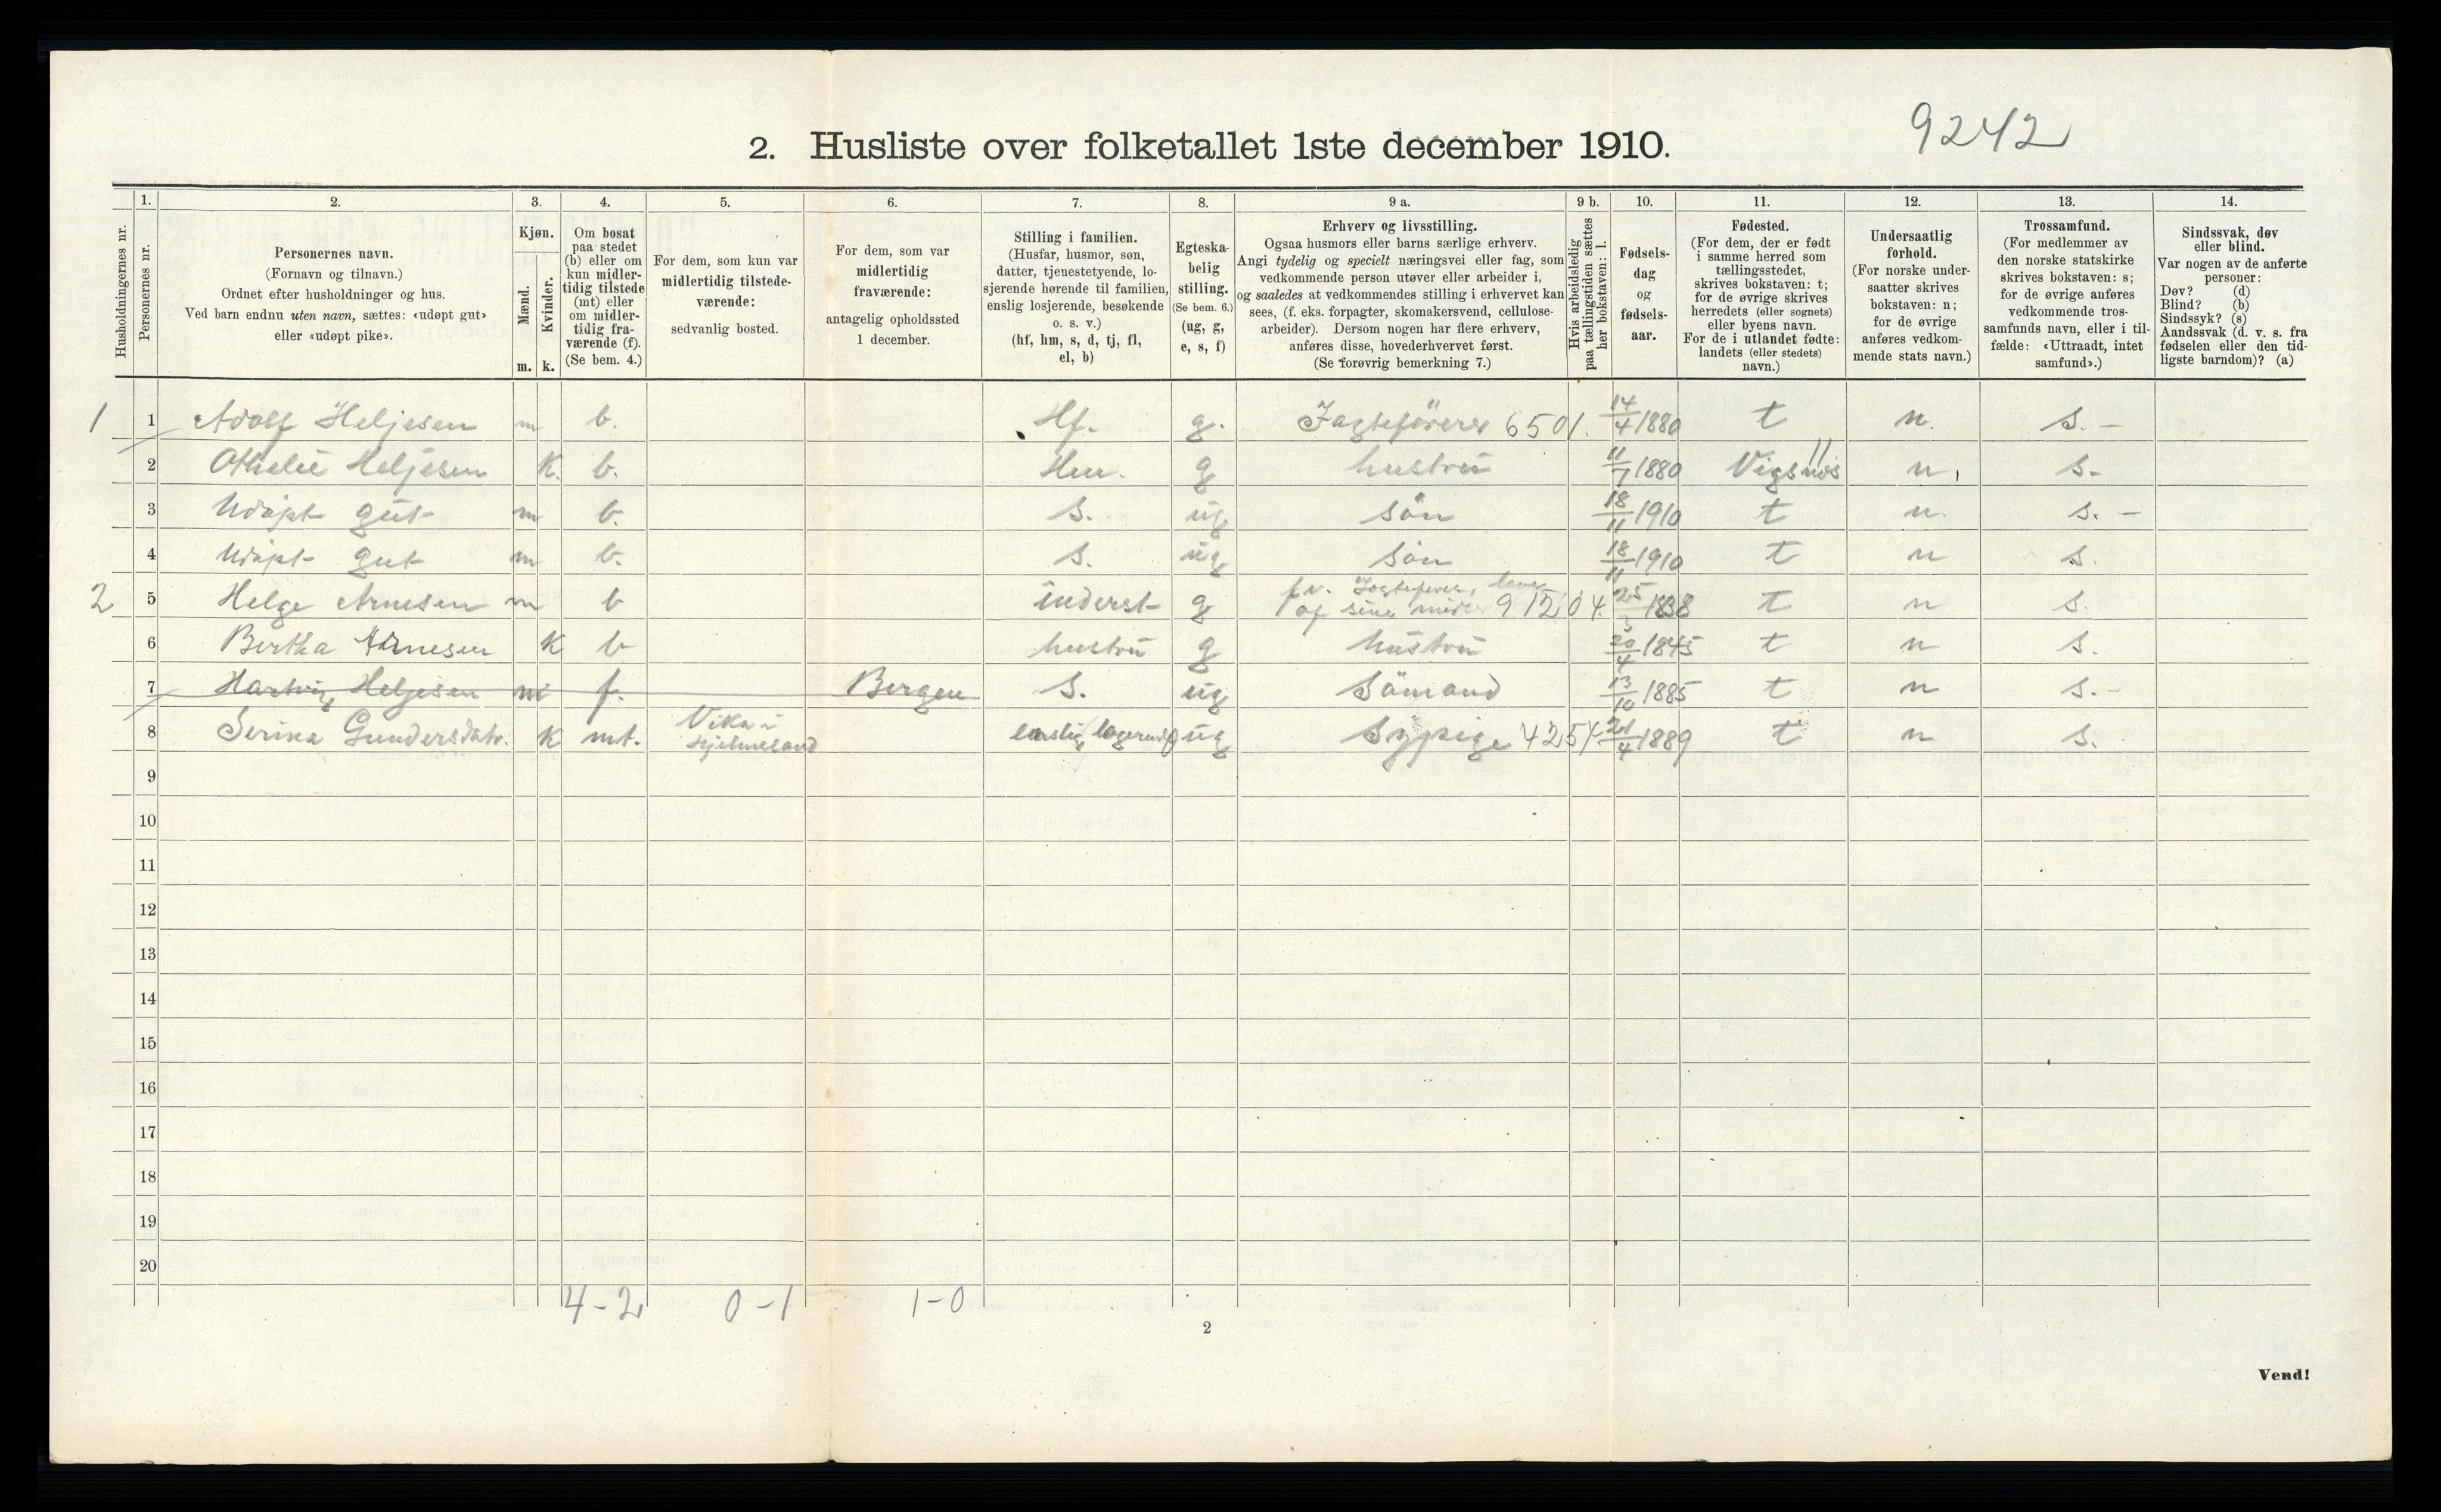 9242
2. Husliste over folketallet 1ste december 1910.
1. 2. 3. 4. 5. 6. 7. 8. 9 a. 9 b. 10. 11. 12. 13. 14.
Husholdningernes nr.
Personernes nr.
Personernes navn.
(Fornavn og tilnavn.)
Ordnet efter husholdninger og hus.
Ved barn endnu uten navn, sættes: «udøpt gut»
eller «udøpt pike».
Kjøn.
Mænd.
Kvinder.
m. k.
Om bosat
paa stedet
(b) eller om
kun midler-
tidig tilstede
(mt) eller
om midler-
tidig fra-
værende (f).
(Se bem. 4.)
For dem, som kun var
midlertidig tilstede-
værende:
sedvanlig bosted.
For dem, som var
midlertidig
fraværende:
antagelig opholdssted
1 december.
Stilling i familien.
(Husfar, husmor, søn,
datter, tjenestetyende, lo-
sjerende hørende til familien,
enslig losjerende, besøkende
o. s. v.)
(hf, hm, s, d, tj, fl,
el, b)
Egteska-
belig
stilling.
(Se bem. 6.)
(ug, g,
e, s, f)
Erhverv og livsstilling.
Ogsaa husmors eller barns særlige erhverv.
Angi tydelig og specielt næringsvei eller fag, som
vedkommende person utøver eller arbeider i,
og saaledes at vedkommendes stilling i erhvervet kan
sees, (f. eks. forpagter, skomakersvend, cellulose-
arbeider). Dersom nogen har flere erhverv,
anføres disse, hovederhvervet først.
(Se forøvrig bemerkning 7.)
Hvis arbeidsledig
paa tællingstiden sættes
her bokstaven: l.
Fødsels-
dag
og
fødsels-
aar.
Fødested.
(For dem, der er født
i samme herred som
tællingsstedet,
skrives bokstaven: t;
for de øvrige skrives
herredets (eller sognets)
eller byens navn.
For de i utlandet fødte:
landets (eller stedets)
navn.)
Undersaatlig
forhold.
(For norske under-
saatter skrives
bokstaven: n;
for de øvrige
anføres vedkom-
mende stats navn.)
Trossamfund.
(For medlemmer av
den norske statskirke
skrives bokstaven: s;
for de øvrige anføres
vedkommende tros-
samfunds navn, eller i til-
fælde: «Uttraadt, intet
samfund».)
Sindssvak, døv
eller blind.
Var nogen av de anførte
personer:
Døv? (d)
Blind? (b)
Sindssyk? (s)
Aandssvak (d. v. s. fra
fødselen eller den tid-
ligste barndom)? (a)
1 1 Adolf Heljesen m b. Hf. g. Jagteförer 6501. 14/4 1880 t n. s. -
2 Othelie Heljesen K. b. Hu. g hustrü 11/7 1880 Vigsnes 11 n. s.
3 Udöpt güt m b. S. üg sön 18/11 1910 t n. s. -
4 Udöpt gut m b. S. üg sön 18/11 1910 t n s.
2 5 Helge Arnesen m b inderst g fv. Jagtefører, lever
af sine midler 91504. 25/3 1838 t n s.
6 Bertha Arnesen K b hustrü g hüstrü 20/4 1845 t n s.
7 Hartvig Heljesen m f. Bergen S. üg Sömand 13/10 1885 t n s. -
8 Serina Gundersdatr. K mt. Vika i
Hjelmeland enslig logerende üg Sypige 425 21/4 1889 t n s.
9
10
11
12
13
14
15
16
17
18
19
20
4-2 0-1 1-0
2
Vend!